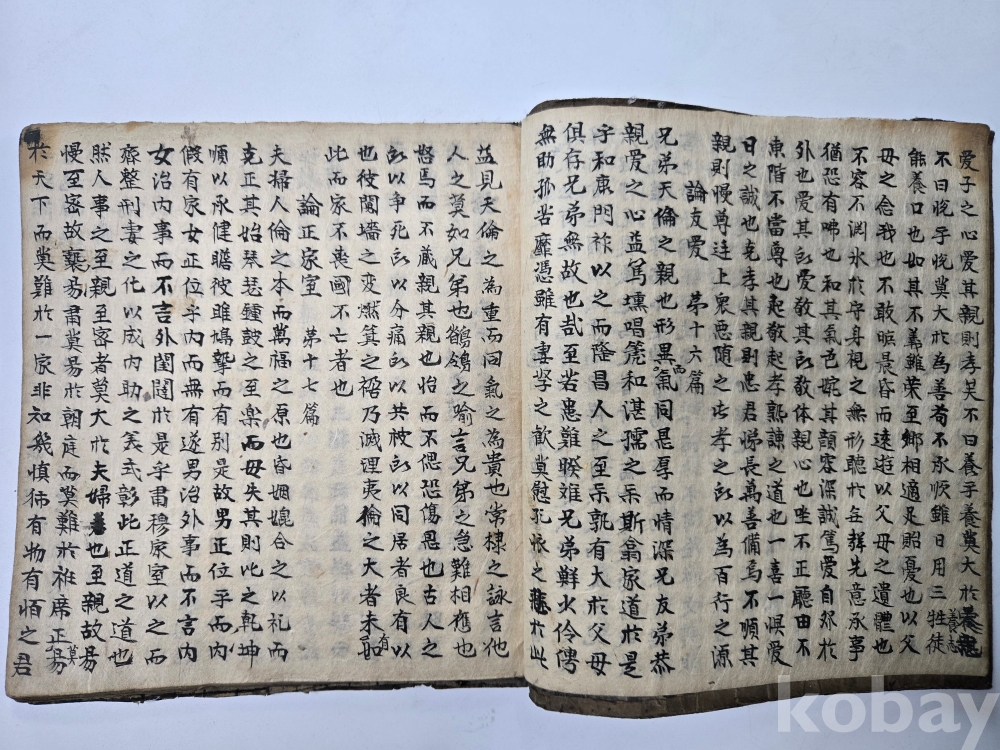 愛子之心愛其親則孝矣不曰養乎養莫大於養志
不曰悅乎悅莫大於為善苟不承順雖日用三牲徒
能養口也如其不義雖榮至鄉相適足貽憂也以父
母之念我也不敢晾晨昏而遠遊以父母之遺體也
不容不淵氷於守身視之無形聽於無聲先意承事
猶恐有咈也和其氣色婉其顔容深誠篤愛自然於
外也愛其所愛敬其所敬体親心也坐不正廳由不
東階不當尊也起敬起孝熟諫之道也一喜一惧愛
日之誠也克孝其親則忠君悌長萬善備焉不順其
親則慢尊違上衆惡随之此孝之所以為百行之源
論友愛 第十六篇
兄弟天倫之親也形異而氣同恩厚而情深兄友弟恭
親愛之心益篤壎唱篪和湛孺之樂斯翕家道於是
乎和康門祚以之而隆昌人之至樂孰有大於父母
俱存兄弟無故也哉至若患難睽離兄弟鮮少伶俜
無助孤苦靡憑雖有妻孥之歡莫慰孔懷之悲於此
益見天倫之為重而同氣之為貴也常棣之詠言他
人之莫如兄弟也鶺鴒之喻言兄弟之急難相携也
怒焉而不藏親其親也怡而不偲恐傷恩也古人之
所以争死所以分痛所以共被所以同居者良有以
也彼鬩墻之变燃箕之禍乃滅理夷倫之大者未有
此而家不喪國不亡者也
論正家室 第十七篇
夫婦人倫之本而萬福之原也昏姻媲合之以礼而
克正其始琴瑟鍾鼓之至樂而毋失其則比之乾坤
順以承健瞻彼雎鳩摯而有別是故男正位乎而內
假有家女正位乎内而無有遂男治外事而不言内
女治内事而不言外閨閫於是乎肅穆家室以之而
齊整刑妻之化以成内助之美式彰此正道之道也
然人事之至親至密者莫大於夫婦也至親故易
慢至密故褻易肅莫易於朝庭而莫難於袵席正莫易
於天下而莫難於一家非知幾慎獨有物有恒之君
kobay